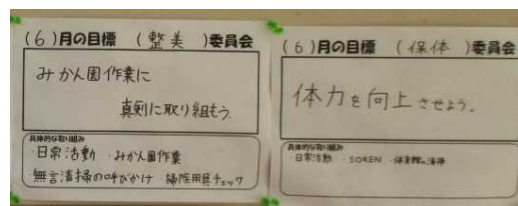 (6)月の目標 (整美)委員会
みかん園作業に
真剣に取り組もう.
具体的な取り組み
・日常活動 ・みかん園作業
・無言清掃の呼びかけ ・掃除用具チェック
(6)月の目標 (保体)委員会
体力を向上させよう.
具体的な取り組み
・日常活動 ・SOKEN ・体育館の清掃